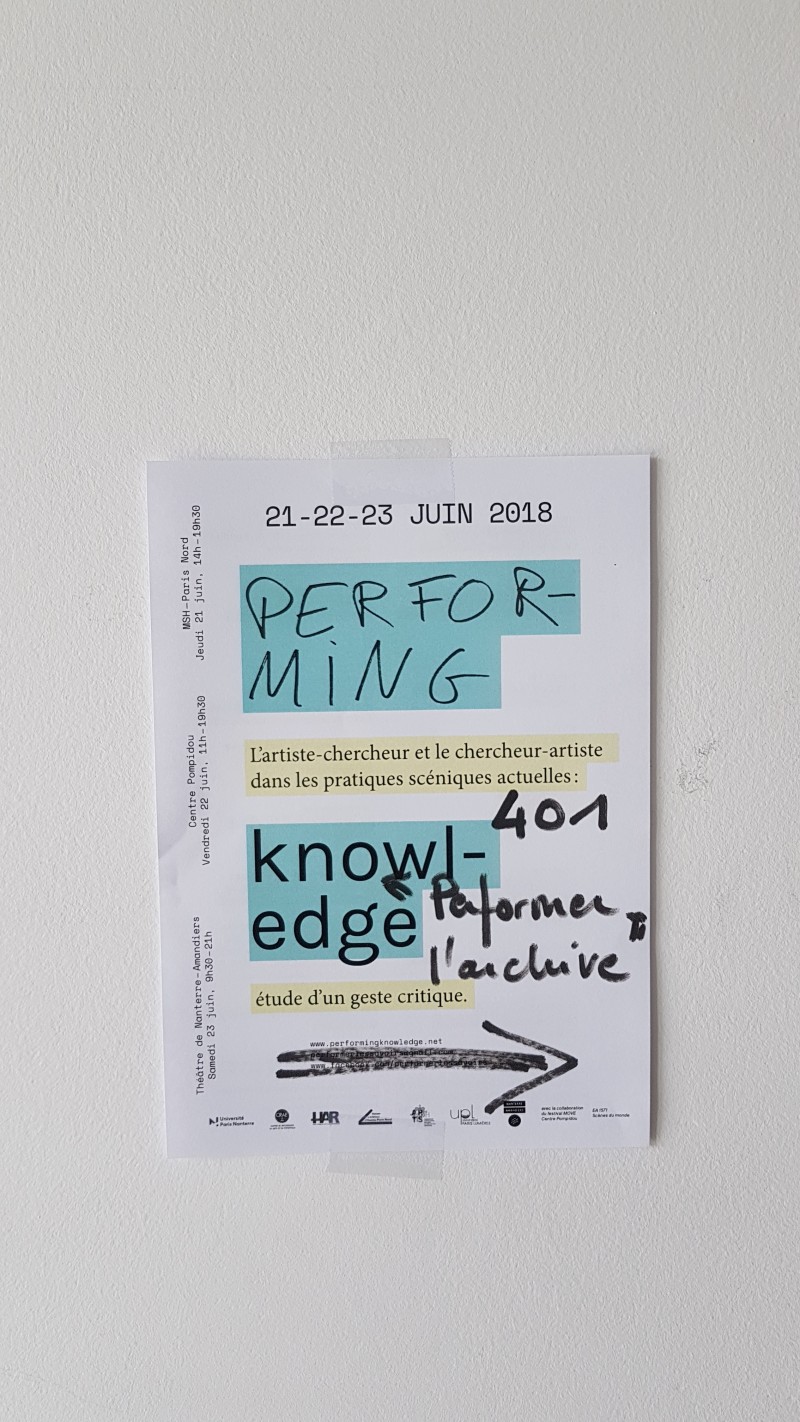 21-22-23 JUIN 2018
MSH-Paris Nord
Jeudi 21 juin, 14h-19h30
Centre Pompidou
Vendredi 22 juin, 11h-19h30
Théâtre de Nanterre-Amandiers
Samedi 23 juin, 9h30-21h
PERFOR-
MING
L'artiste-chercheur et le chercheur-artiste
dans les pratiques scéniques actuelles :
401
knowl-
edge
Performer
l'archive
étude d'un geste critique.
www.performingknowledge.net
Université
Paris Nanterre
HAR
upl
avec la collaboration
du festival MOVE
Centre Pompidou
EA 1571
Scènes du monde